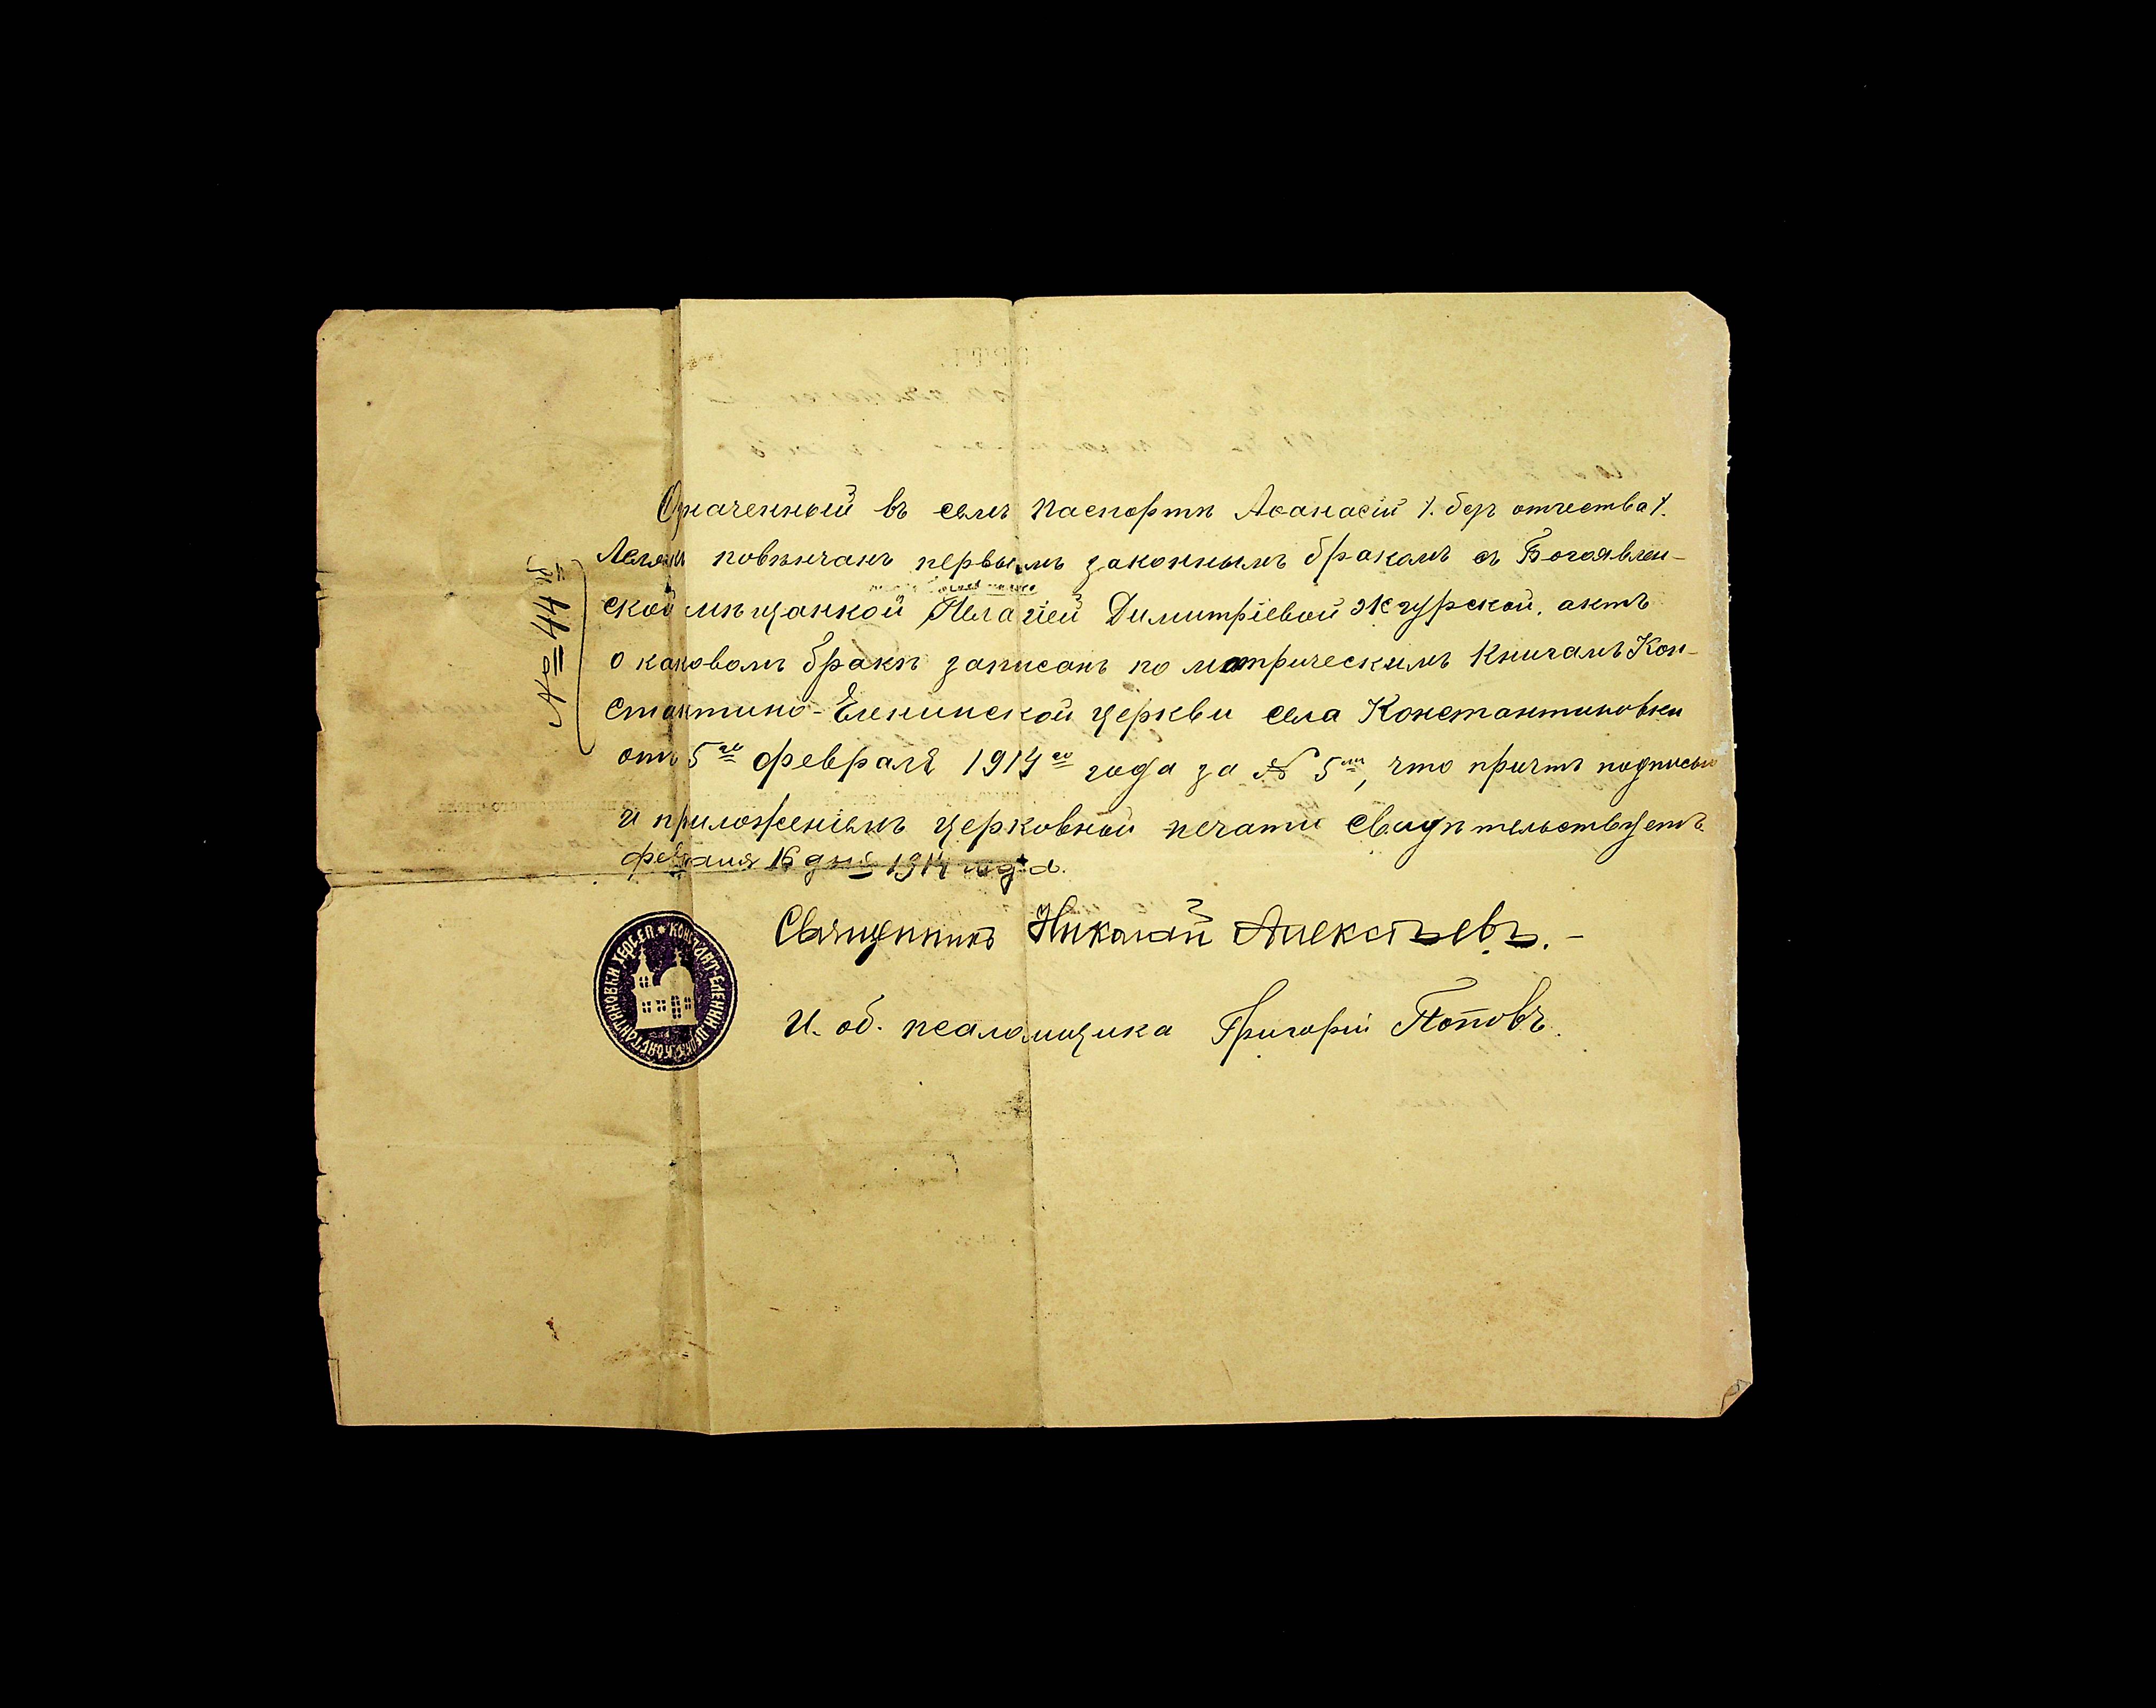 № 44й
Означенный въ семъ паспортѣ Аѳанасій /. безъ отчества /.
повѣнчанъ первымъ законнымъ бракомъ съ Богоявлен-
ской мѣщанкой Пелагіей Димитріевой Жгурской, актъ
о каковомъ бракѣ записанъ по метрическимъ книгамъ Кон-
стантино-Еленинской церкви села Константиновки
отъ 5го февраля 1914го года за № 5мъ, что причтъ подписью
и приложеніемъ церковной печати свидѣтельствуетъ
февраля 16 дня 1914 года.
Священникъ Николай Алексѣевъ. -
И. об. псаломщика Григорій Поповъ.
КОНСТАНТ-ЕЛЕНИН. ЦЕРК. КОНСТАНТИНОВКИ ХЕРС. ЕП. *